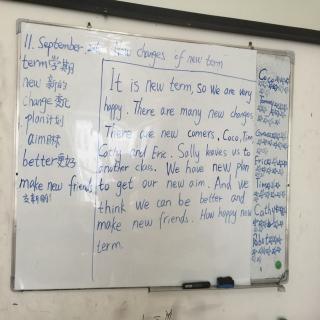 11. September New changes of new term
term学期
new 新的
change 变化
plan计划
aim目标
better更好
make new friends
交新朋友
It is new term, so we are very
happy. There are many new changes
There are new comers, Coco, Tim
Cathy and Eric. Sally leaves us to
another class. We have new plan
to get our new aim. And we
think we can be better and
make new friends. How happy new
term.
Coco
Tommy
Erica
Tim
Cathy
Robot